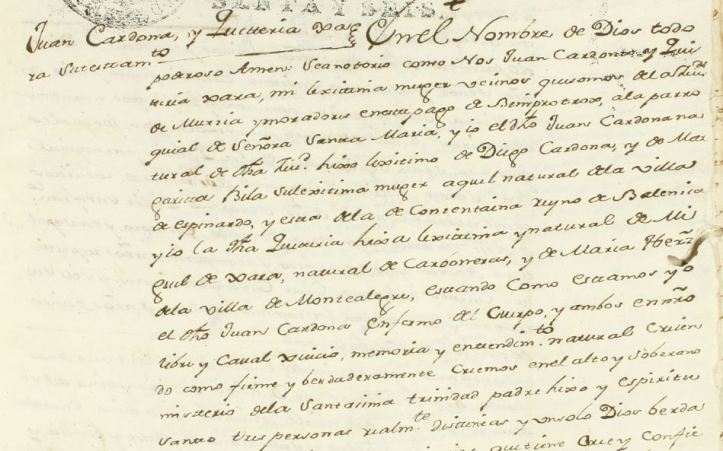 SENTA Y SEIS.
Juan Cardona, y Quiteria xa
ra su testamto
En el Nombre de Dios todo
poderoso Amen: Sea notorio como Nos Juan Cardona y Qui
teria xara, mi lexitima muger vecinos que somos de la Ziud.
de Murzia y moradores en su pago de Beniprotrox, a la parro
quial de Señora Santa Maria, y io el dho Juan Cardona na
tural de dha Ziud. hixo lexitimo de Diego Cardona, y de Mar
garita Bila su lexitima muger aquel natural de la villa
de espinardo, y esta de la de Contentaina reyno de Balencia
y io la dha Quiteria hixa lexitima y natural de Mi
guel de xara, natural de Carboneras, y de Maria Herrz
de la villa de Montealegre, estando Como estamos y o
el dho Juan Cardona enfermo del Cuerpo, y ambos en nro
libre y Caval xuicio, memoria y entendimto natural Creien
do como firme y berdaderamente Creemos en el alto y soberano
misterio de la Santisima trinidad padre hixo y espiritu
santo tres personas realmte distintas y un solo Dios berda
que tiene Cree y Confie